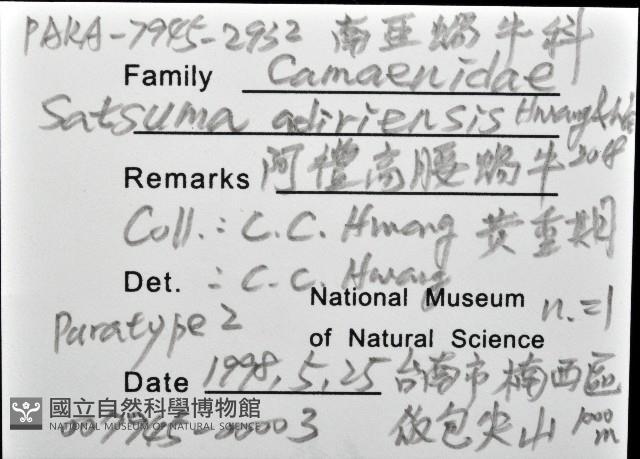 PAKA-7945-2932 南亞蝸牛科
Family Camaenidae
Satsuma adiriensis Hwang &
Remarks 阿禮高腰蝸牛 2018
Coll.: C.C. Hwang 黃重期
Det. : C.C. Hwang
National Museum n.=1
Paratype 2 of Natural Science
Date 1998.5.25 台南市楠西區
國立自然科學博物館
NATIONAL MUSEUM OF NATURAL SCIENCE
007945-00003 包尖山 1000m